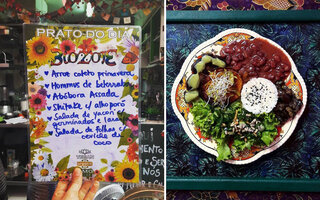 PRATO DO DIA
♥ Arroz cateto primavera
♥ Hommus de beterraba
♥ Abóbora Assada
♥ Shitake c/ alho poró
♥ Salada de yacon
germinados e
♥ Salada de folhas c/
ceviche de
coco